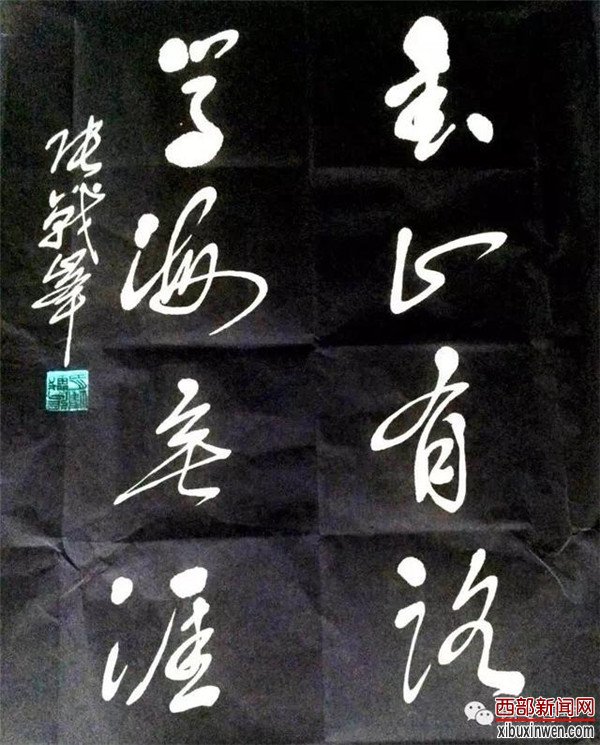 书山有路
学海无涯
张战峰
西部新闻网
xibuxinwen.com